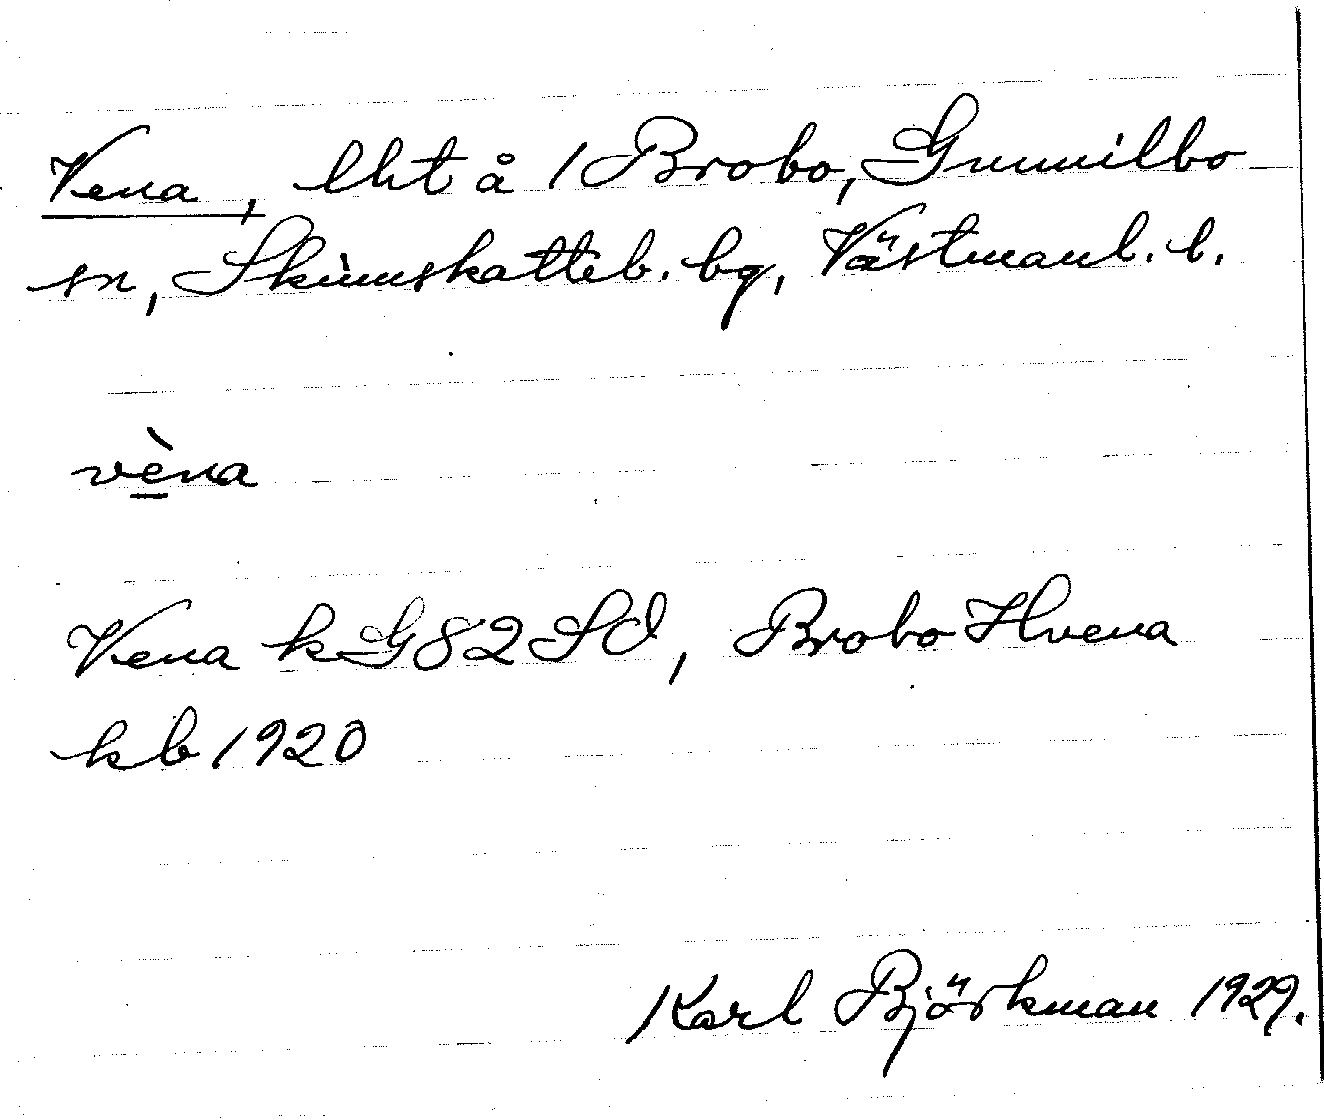 Vena, lht å 1 Brobo, Gunnilbo
sn, Skinnskatteb. bg, Västmanl. l.
vèna
Vena k G 82 SO, Brobo Hvena
kb 1920
Karl Björkman 1929.